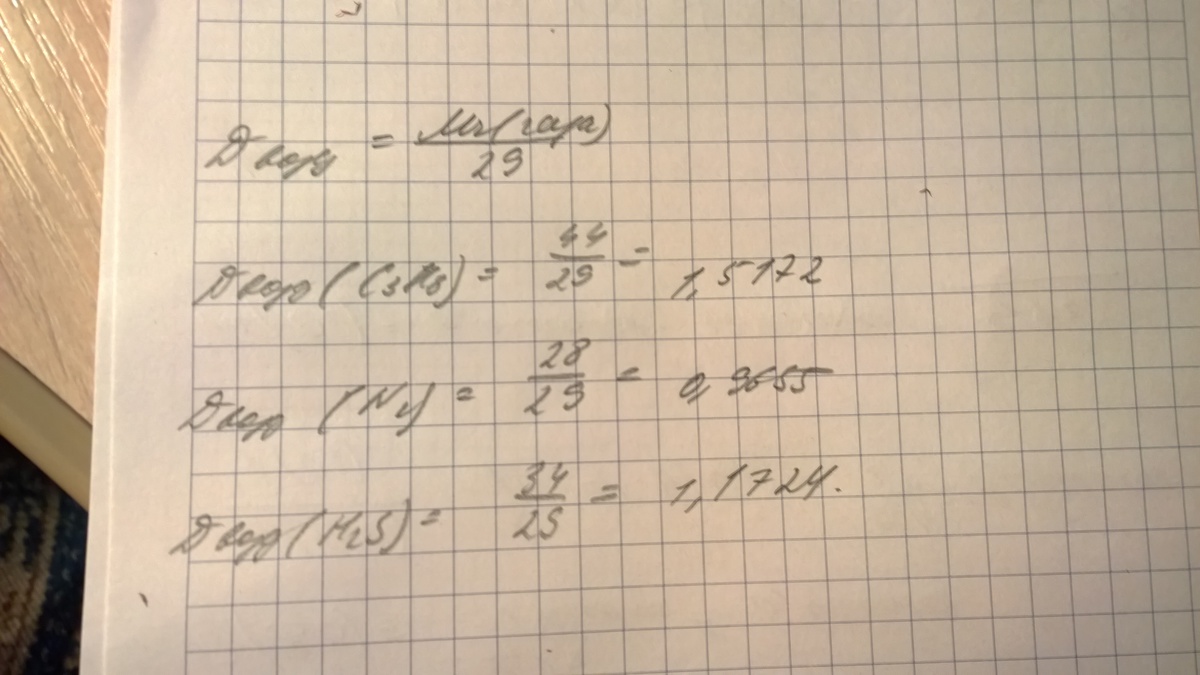 Dвозд = Mr(газа) / 29
Dвозд (C3H8) = 44/29 = 1,5172
Dвозд (N2) = 28/29 = 0,9655
Dвозд (H2S) = 34/29 = 1,1724.